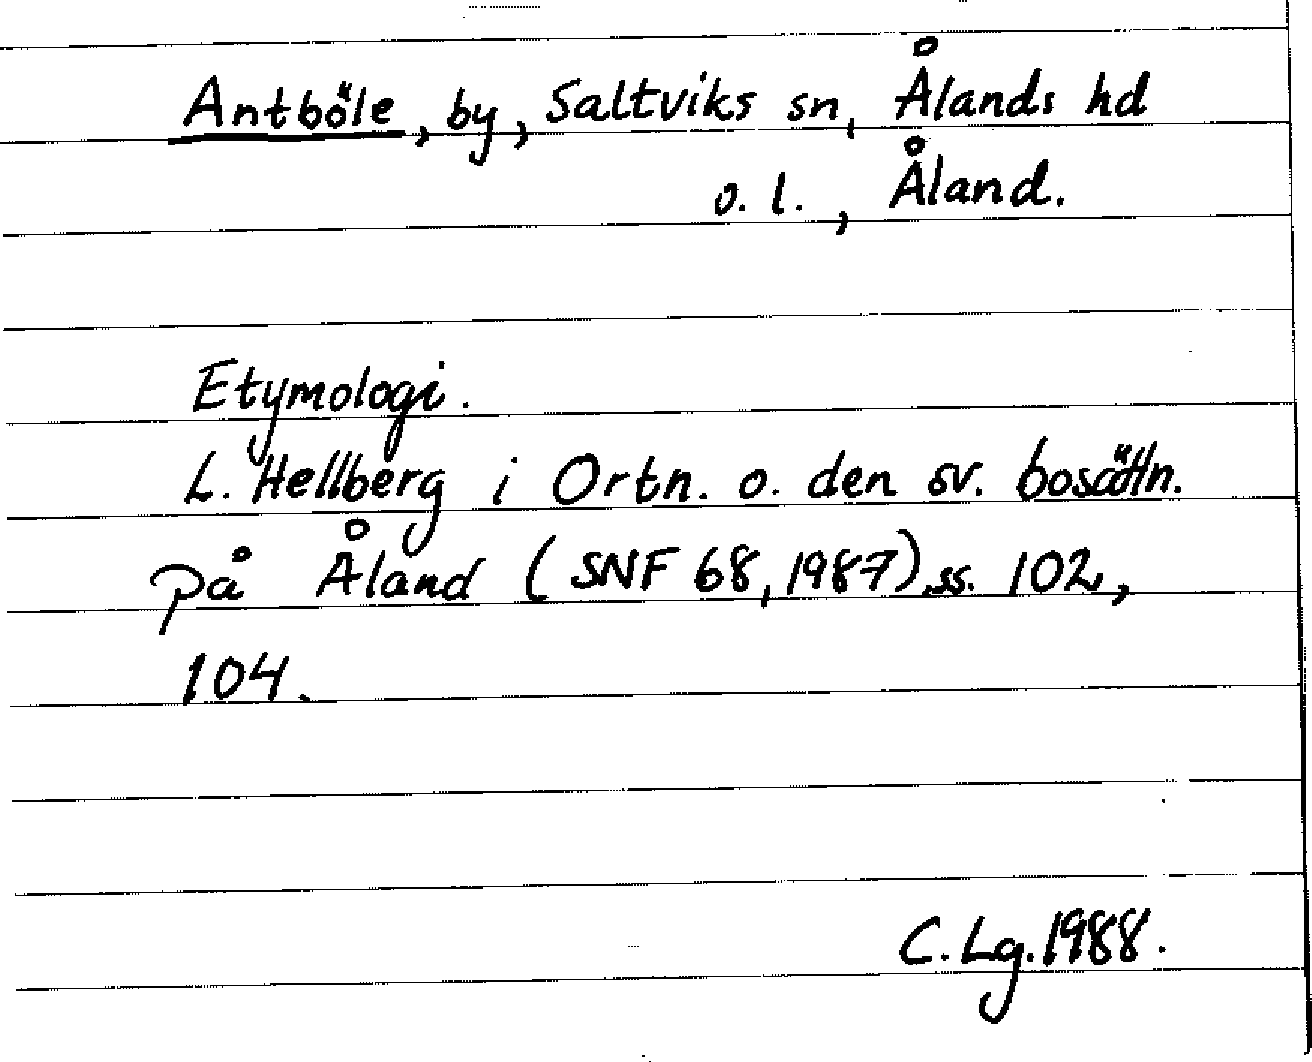 Antböle, by, Saltviks sn, Ålands hd
o. l., Åland.
Etymologi.
L. Hellberg i Ortn. o. den sv. bosättn.
på Åland (SNF 68, 1987), ss. 102,
104.
C. Lg. 1988.